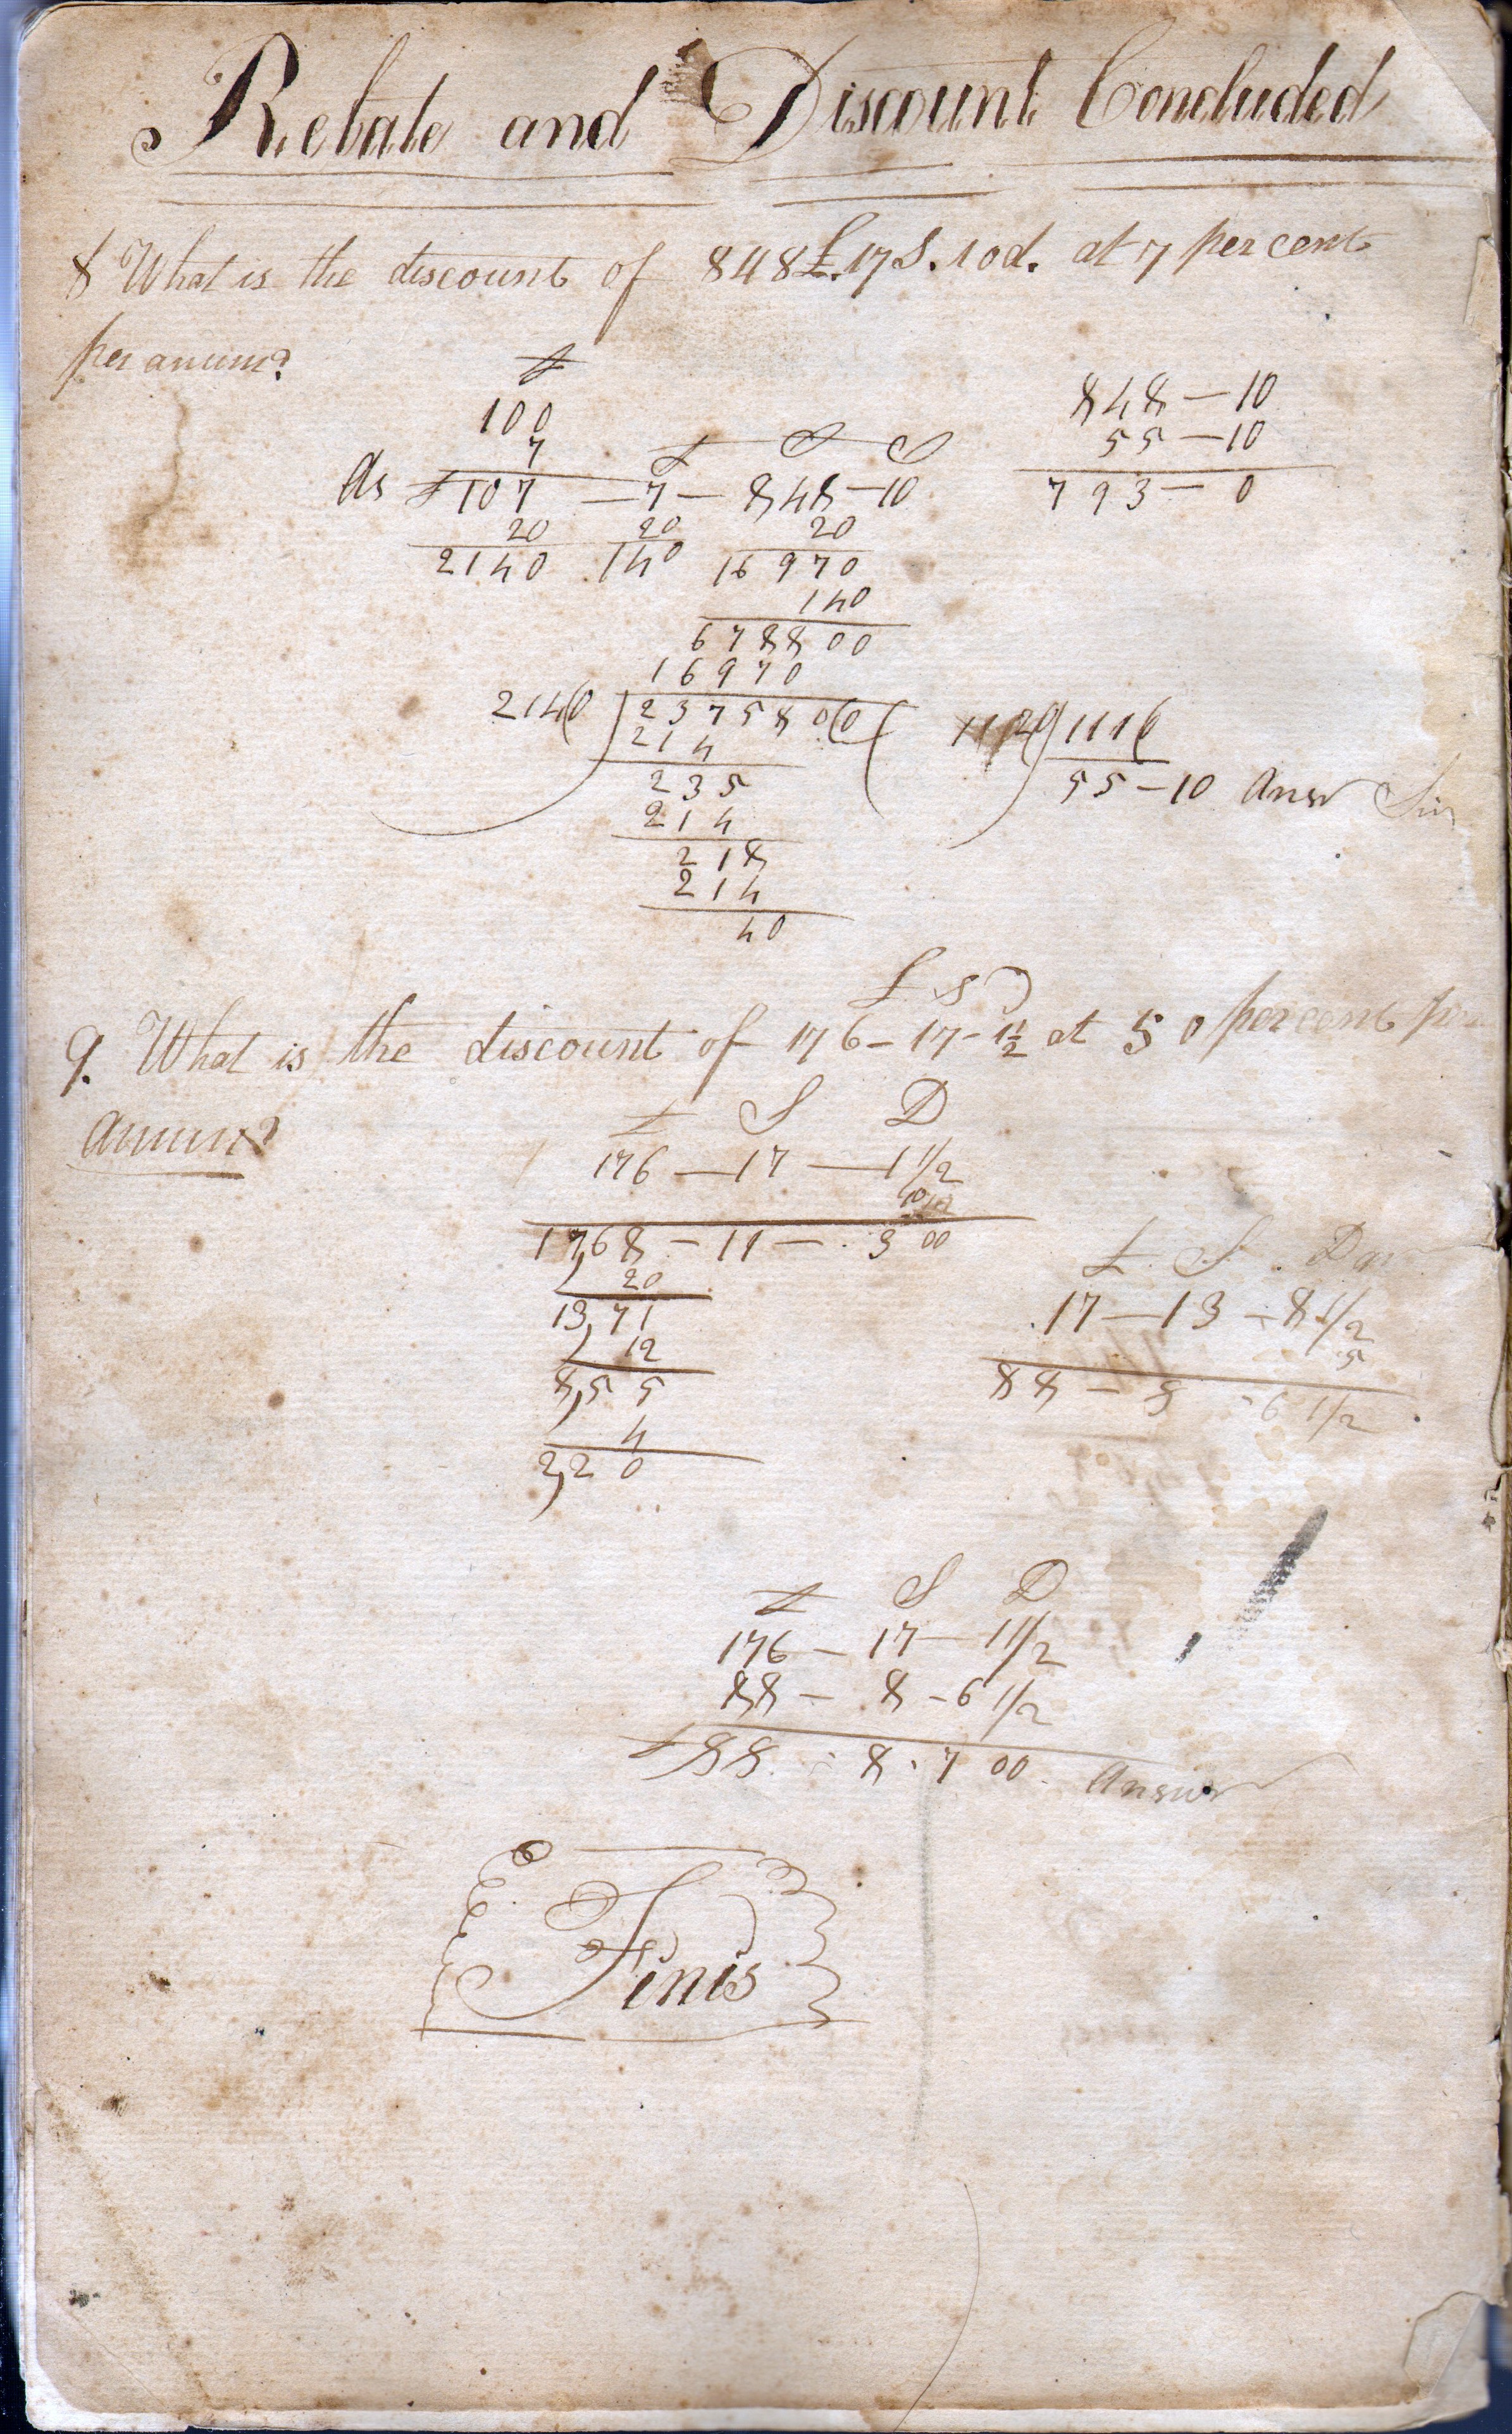 Rebate and Discount Concluded
8 What is the discount of 848£.17S.10d. at 7 per cent
per anum?
£
100
7
£ S S
As £107 — 7 — 848 — 10
20 20 20
2140 140 16970
140
678800
16970
2140 ) 2375800 (
214
235
214
218
214
40
848 — 10
55 — 10
793 — 0
20) 111(
55 — 10 Answr
£ S D
9. What is the discount of 176 — 17 — 1½ at 50 per cent per
annum?
£ S D
176 — 17 — 1 1/2
10
17,68 — 11 — 3 00
20
13,71
12
8,55
4
2,20
£. S. D
17 — 13 — 8 1/2
5
88 — 8 - 6 1/2
£ S D
176 — 17 — 1 1/2
88 — 8 — 6 1/2
£88 : 8 . 7 00. Answr
Finis